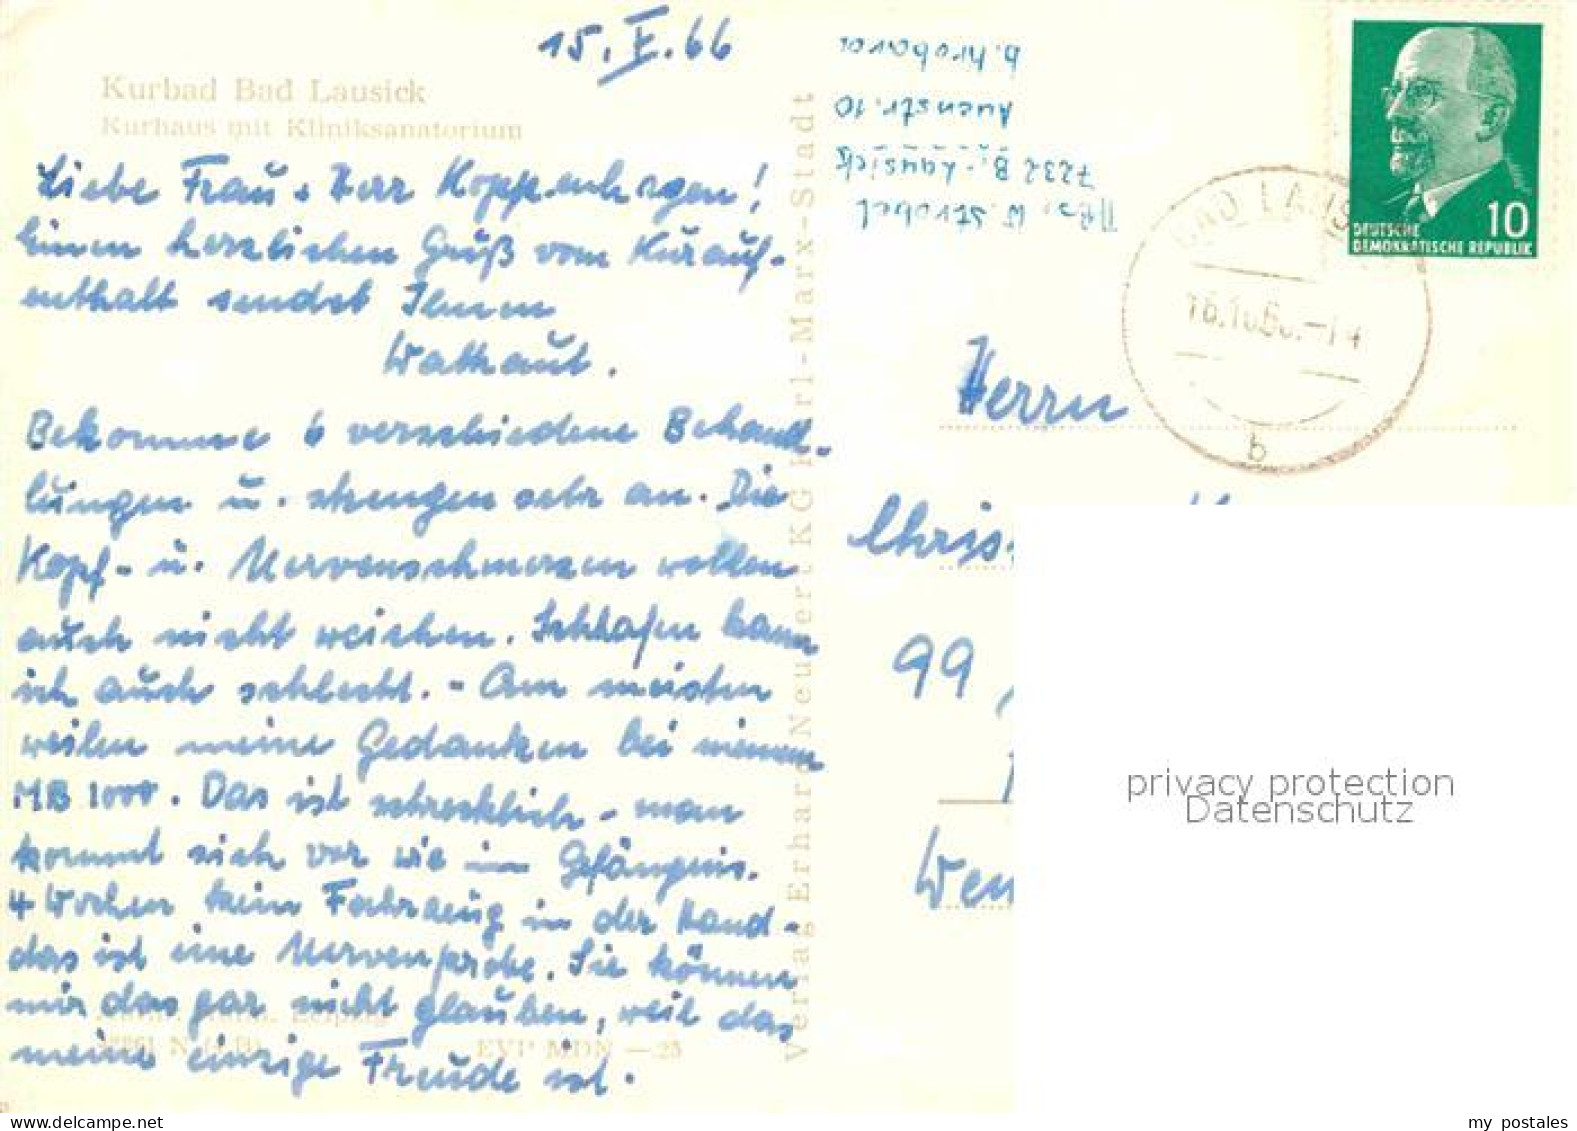 15. X. 66
Kurbad Bad Lausick
Kurhaus mit Kliniksanatorium
Liebe Frau u. Herr Koppenhagen!
Einen herzlichen Gruß vom Kurauf-
enthalt sendet Ihnen
Walthaut.
Bekomme 6 verschiedene Behand-
lungen u. strengen sehr an. Die
Kopf- u. Nervenschmerzen wollen
auch nicht weichen. Schlafen kann
ich auch schlecht. - Am meisten
weilen meine Gedanken bei meinem
MB 1000. Das ist schrecklich - man
kommt sich vor wie im Gefängnis.
4 Wochen kein Fahrzeug in der Hand -
das ist eine Nervenprobe. Sie können
mir das gar nicht glauben, weil das
meine einzige Freude ist.
Leipzig
EVP MDN —25
Verlag Erhard Neubert KG Karl-Marx-Stadt
Abs. W. Strobel
7232 B.-Lausick
Auenstr. 10
b. Hrobara
DEUTSCHE
DEMOKRATISCHE REPUBLIK
10
BAD LAUS
16.10.66.-14
b
Herrn
Chris
99
Wen
privacy protection
Datenschutz
my postales